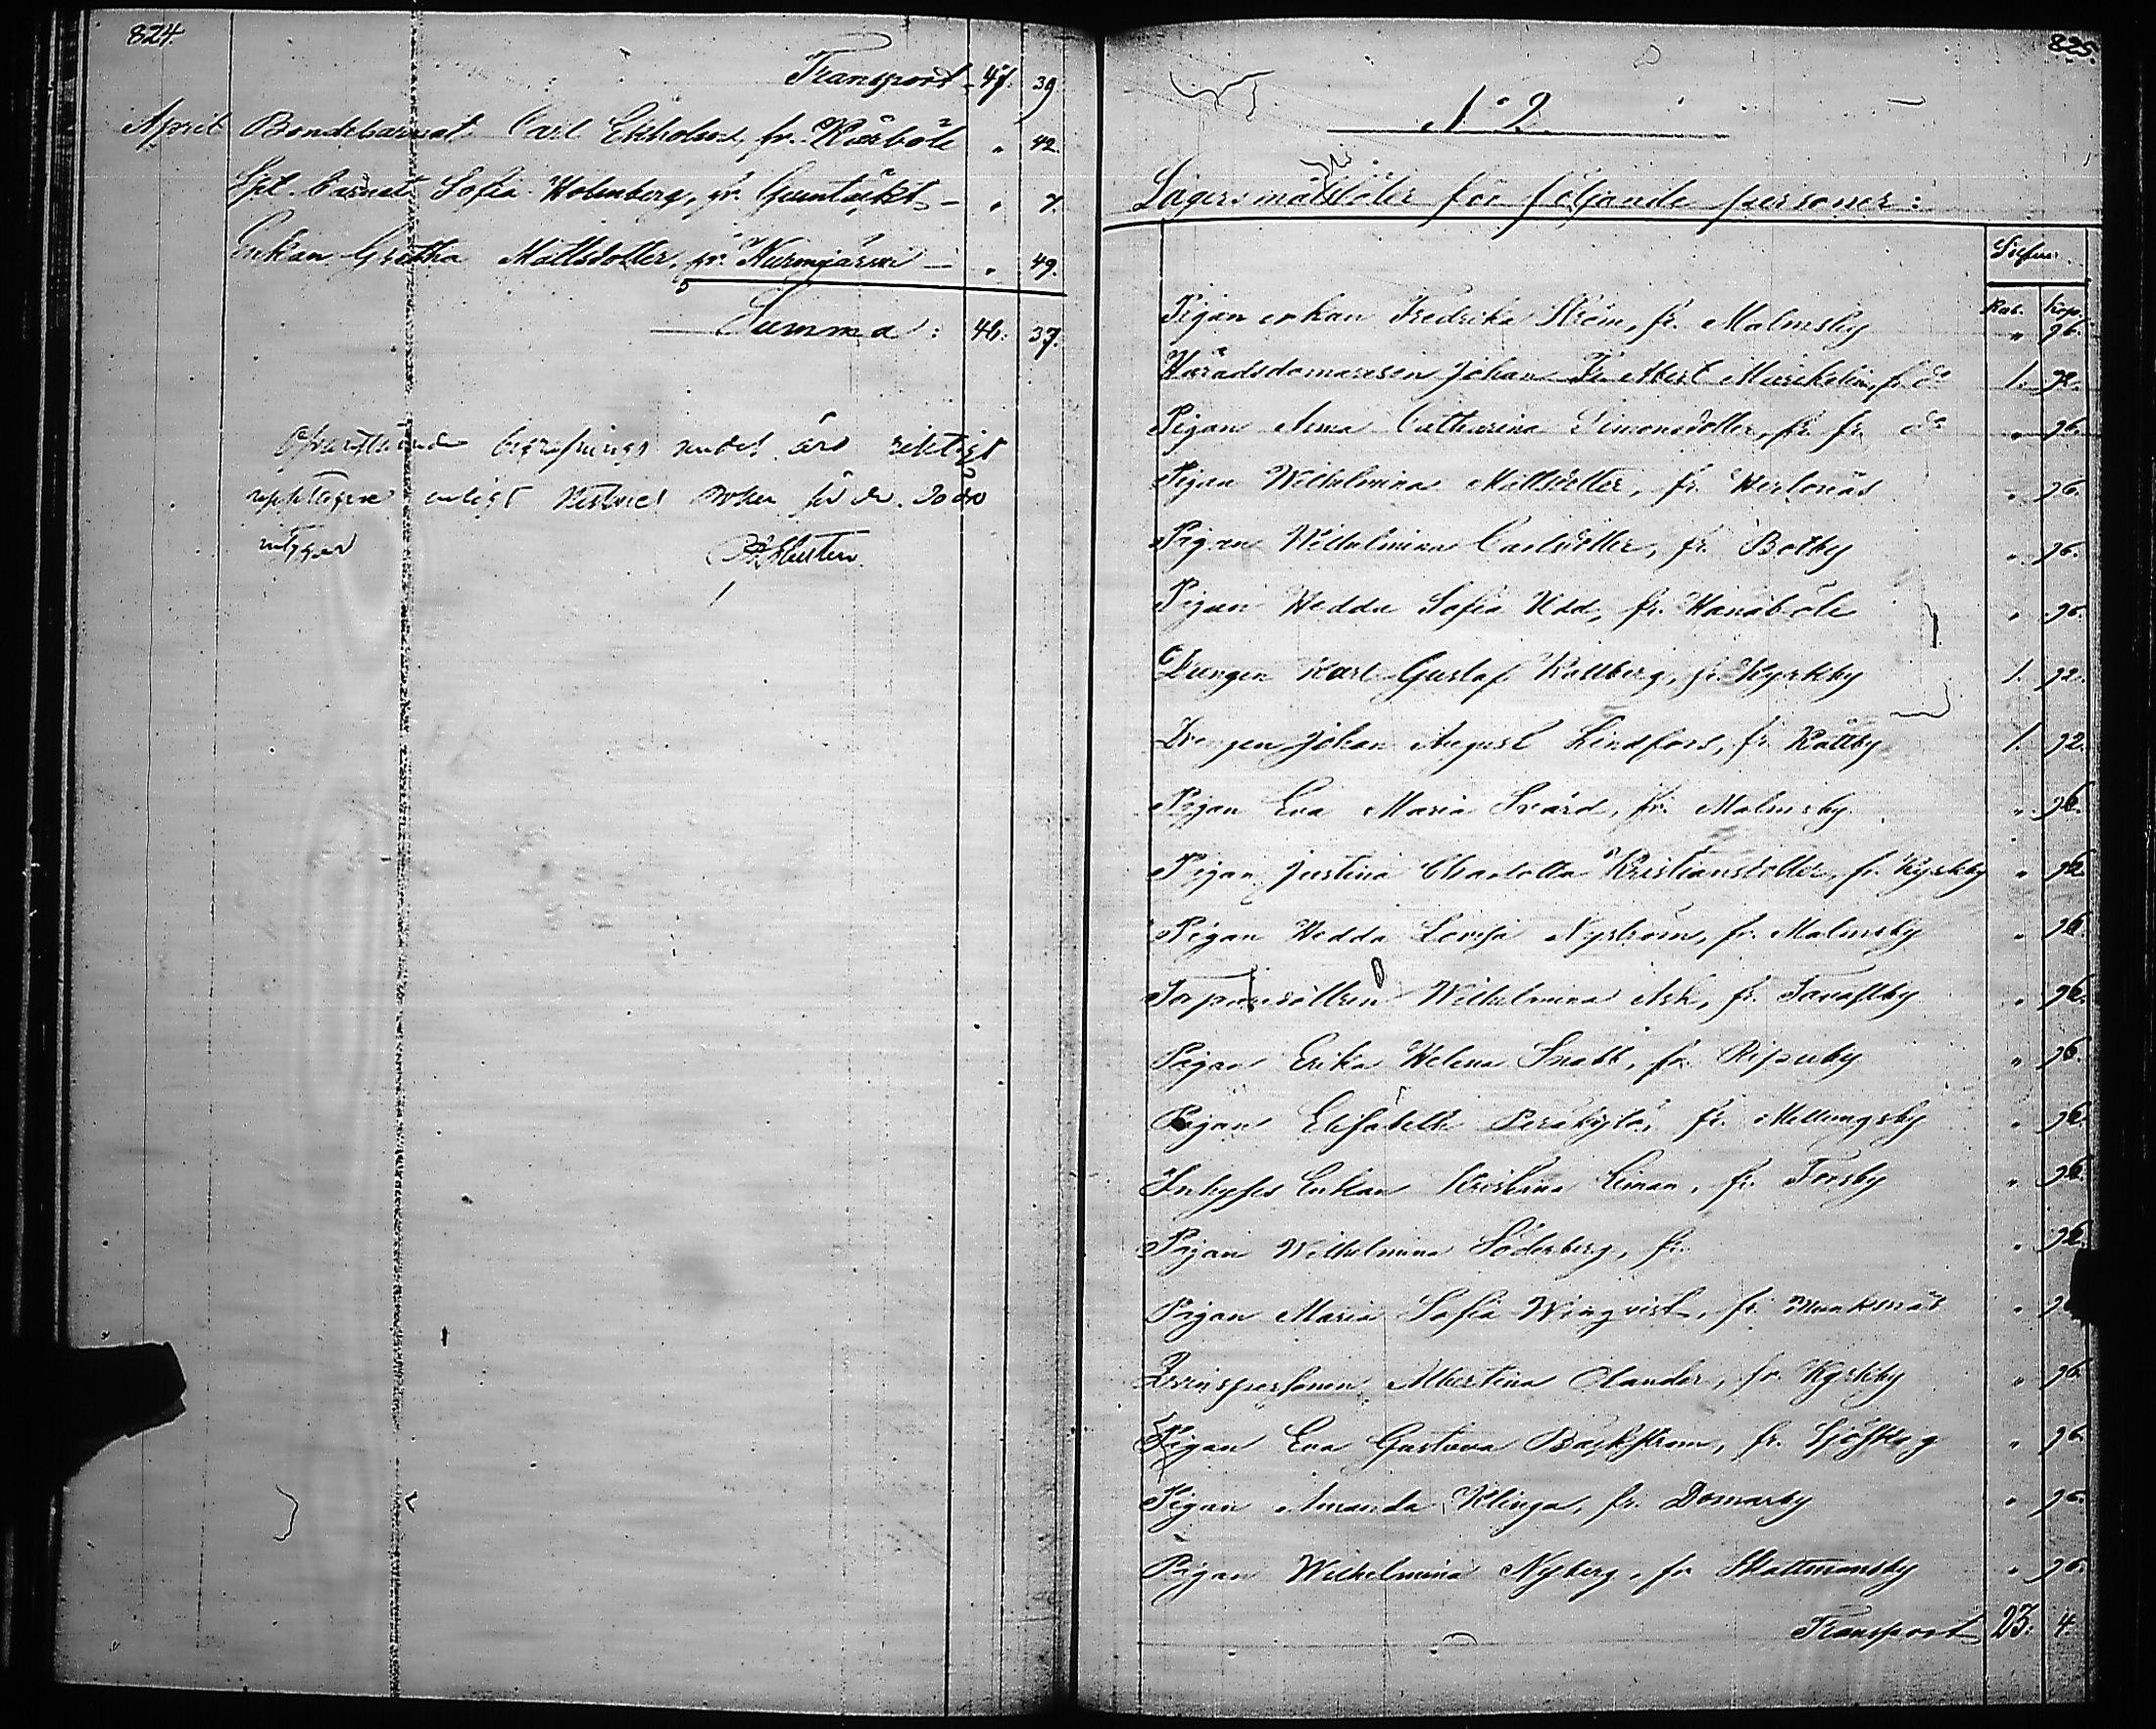 824.
Transport 47. 39
April Bondebarnet Carl Ekholm, fr. Kärböle " 42.
Spl. barnet Sofia Holmberg, fr. Gumtäckt " 7.
Enkan Gretha Mattsdotter, fr. " 49.
Summa: 46. 37.
begrafnings riktigt
enligt
825.
N:o 2
Lägersmålsböter för följande personer:
Silfver.
Rub. Kop.
Pigan enkan Fredrika Ström, fr. Malmsby " 96.
Häradsdomaresön Johan Fr. Albert fr. d:o 1. 92.
Pigan Anna Catharina Simonsdotter, fr. fr. d:o " 96.
Pigan Wilhelmina Mattsdotter, fr. " 96.
Pigan Wilhelmina Carlsdotter, fr. Botby " 96.
Pigan Hedda Sofia Udd, fr. Hanaböle " 96.
Drengen Karl Gustaf Kallberg, fr. Kyrkby 1. 92.
Drengen Johan August Lindfors, fr. Rättby 1. 92.
Pigan Eva Maria Svärd, fr. Malmsby " 96.
Pigan Justina Charlotta Kristiansdotter, fr. Kyrkby " 96
Pigan Hedda Lovisa Nyström, fr. Malmsby " 96.
Torparedottren Wilhelmina Ask, fr. Tavastby " 96.
Pigan Erika Helena Snabb, fr. " 96.
Pigan Elisabeth Perakylä, fr. Mellungsby " 96.
Inhyses Enkan Kristina Ciman, fr. Forsby " 96.
Pigan Wilhelmina Söderberg, fr. " 96.
Pigan Maria Sofia Winqvist, fr. Munksnäs "
Qvinspersonen Albertina Olander, fr. Kyrkby " 96.
Pigan Eva Gustava Bäckström, fr. Sjöskog " 96.
Pigan Amanda Klinga, fr. Domarby " 96.
Pigan Wilhelmina Nyberg, fr. Skattmansby " 96.
Transport 23. 4.